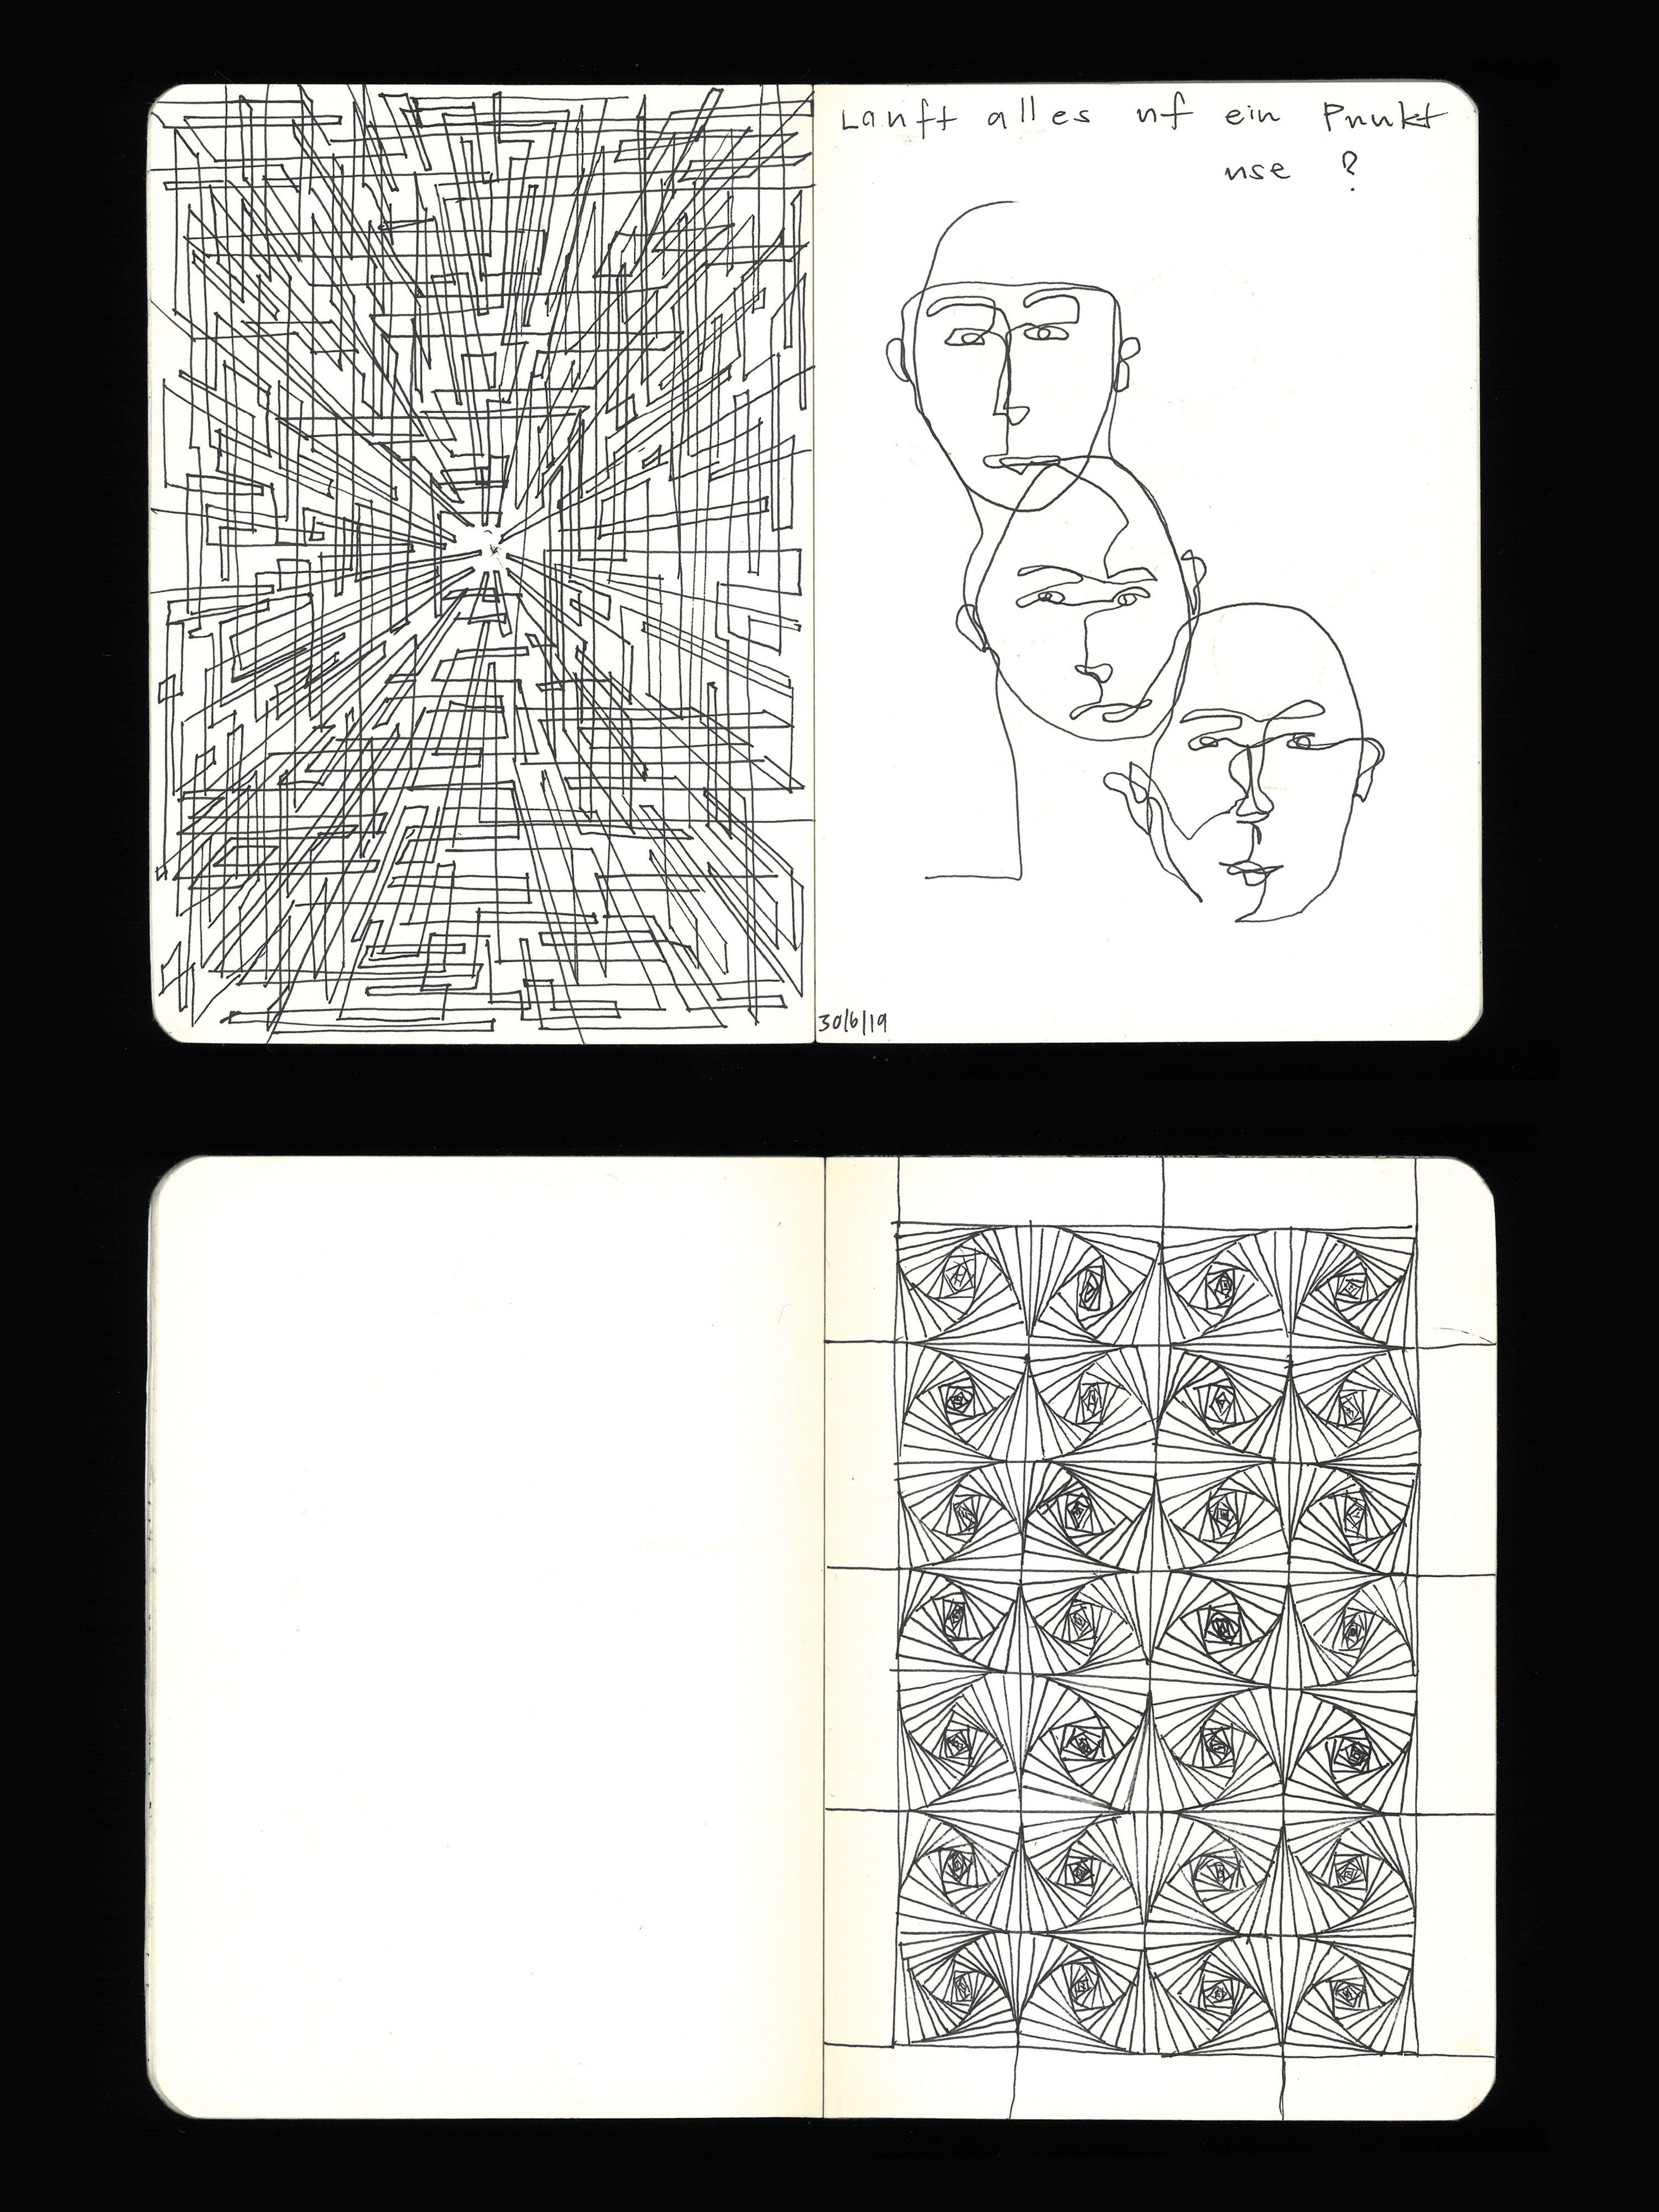 Lauft alles uf ein Punkt
use ?
30/6/19